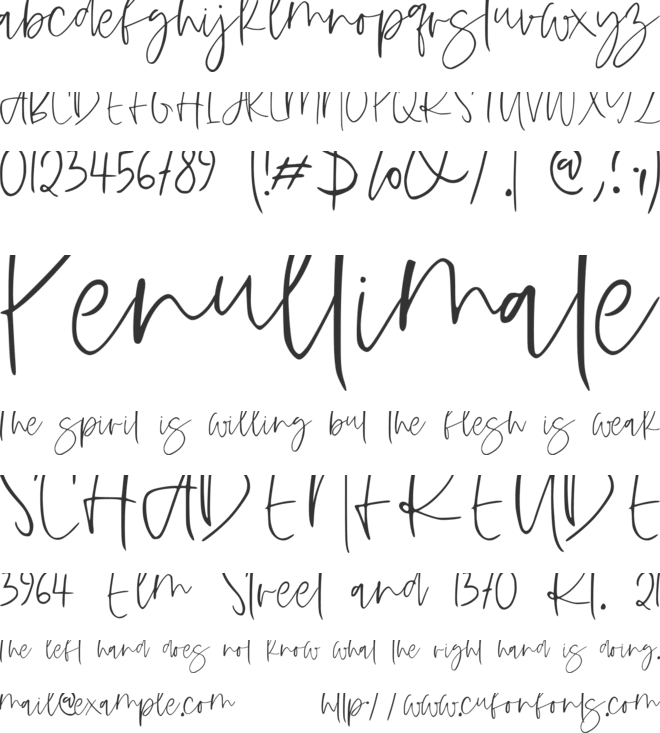 abcdefghijklmnopqrstuvwxyz
ABCDEFGHIJKLMNOPQRSTUVWXYZ
0123456789 (!#$%&/.|@,?:;)
Penultimate
The spirit is willing but the flesh is weak
SCHADENFREUDE
3964 Elm Street and 1370 Rt. 21
The left hand does not know what the right hand is doing.
mail@example.com http://www.cufonfonts.com